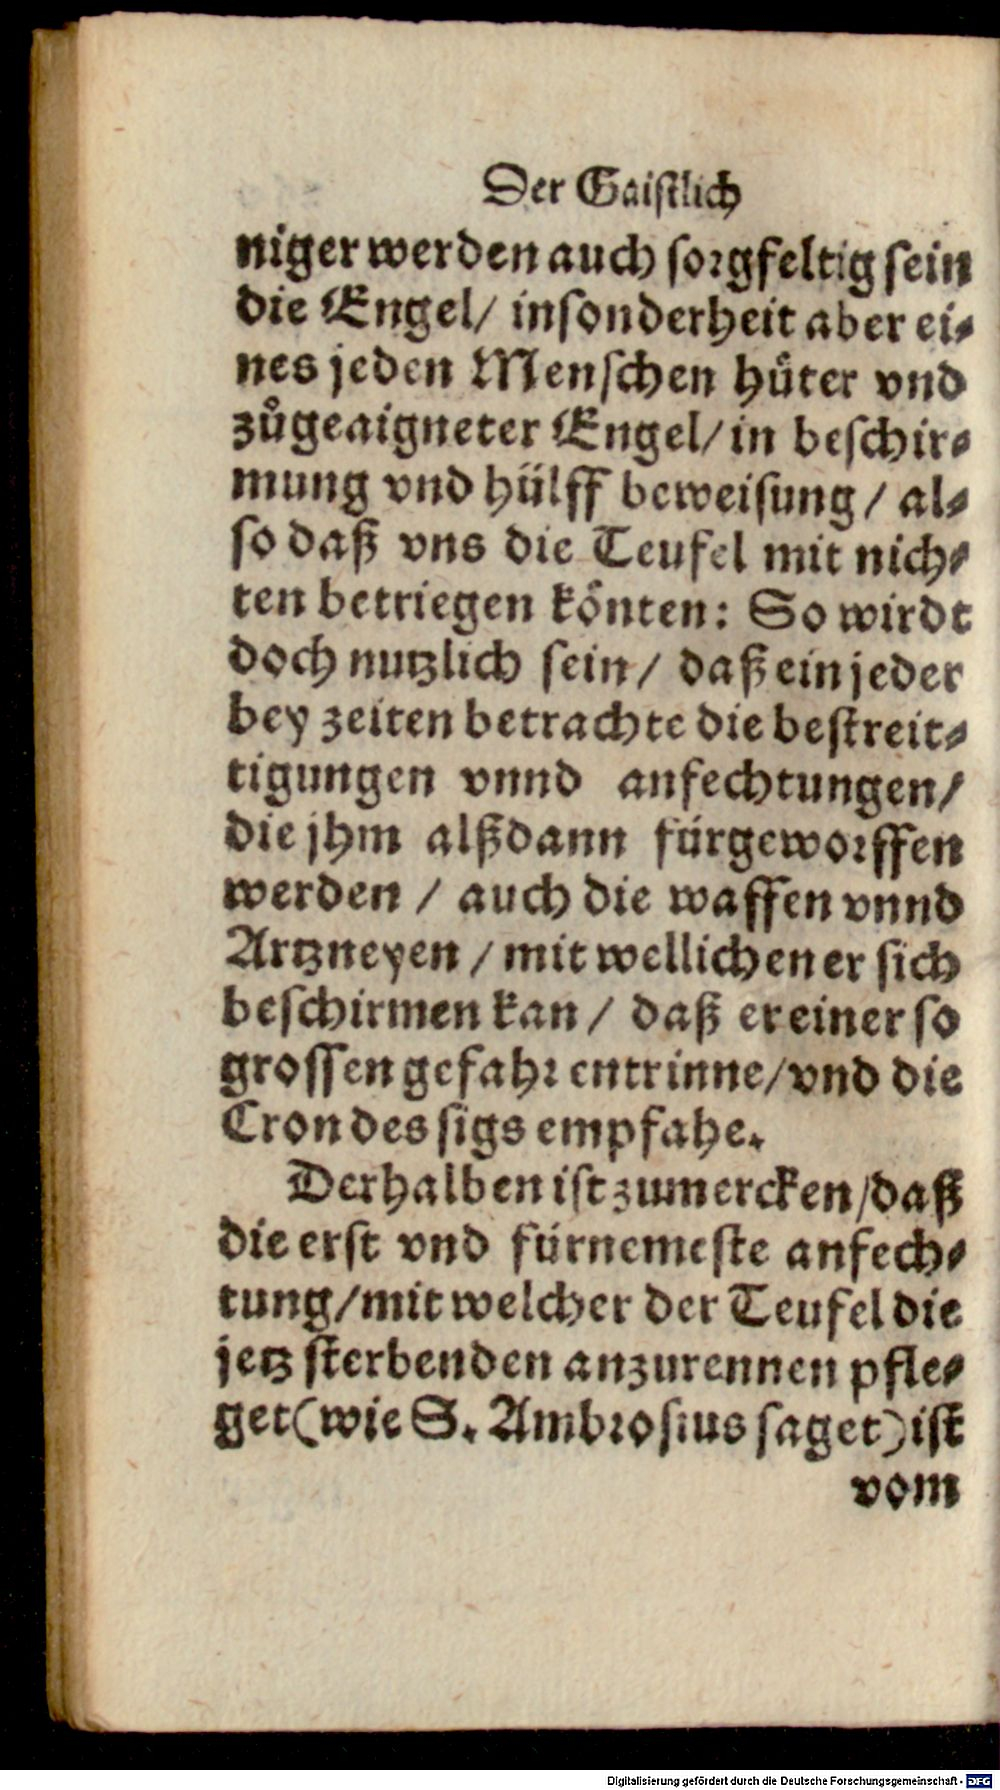 Der Gaistlich
niger werden auch sorgfeltig sein
die Engel/ insonderheit aber ei⸗
nes jeden Menschen hüter vnd
zůgeaigneter Engel/ in beschir⸗
mung vnd hülff beweisung/ al⸗
so daß vns die Teufel mit nich⸗
ten betriegen könten: So wirdt
doch nutzlich sein/ daß ein jeder
bey zeiten betrachte die bestreit⸗
tigungen vnnd anfechtungen/
die jhm alßdann fürgeworffen
werden/ auch die waffen vnnd
Artzneyen/ mit wellichen er sich
beschirmen kan/ daß er einer so
grossen gefahr entrinne/ vnd die
Cron des sigs empfahe.
Derhalben ist zumercken/ daß
die erst vnd fürnemeste anfech⸗
tung/ mit welcher der Teufel die
jetz sterbenden anzurennen pfle⸗
get (wie S. Ambrosius saget) ist
vom
Digitalisierung gefördert durch die Deutsche Forschungsgemeinschaft - DFG